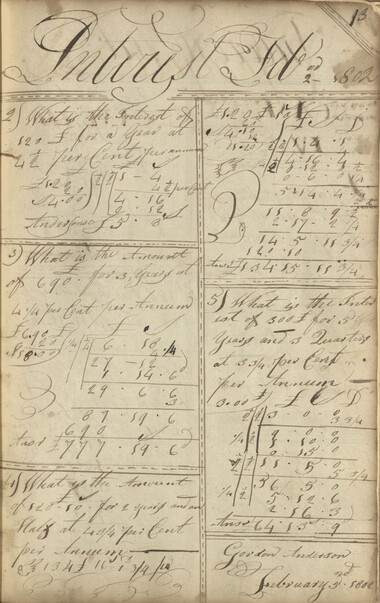 13
Interest Feb 2nd 1802
2) What is the Interest of
120 £ for a Year at
4 1/2 per Cent per annum
4 . 16
Answer £ 5 . 8
3) What is the Amount
of 690 . for 3 Years at
4 1/4 per Cent per Annum
£690 £
6 . 18
27 . 12
1 . 14 . 6
29 . 6 . 6
3
87 . 19 . 6
690
Answ £ 777 . 19 . 6
4) What is the Amount
of 120 . 10 . for 2 Years and an
Half at 4 3/4 per Cent
per Annum
5 . 14 . 4
11 . 8 . 9
2 . 17 . 2
14 . 5 . 11 3/4
120 . 10
Answ £ 134 . 15 . 11 3/4
5) What is the Inter
est of 300 £ for 5
Years and 3 Quarters
at 3 3/4 per Cent
per Annum
300 £
3 . 0 . 0
3 3/4
9 . 0 . 0
1 . 10 . 0
0 . 15 . 0
11 . 5 . 0
5 3/4
56 . 5 . 0
5 . 12 . 6
2 . 16 . 3
Answ 64 . 13 . 9
Gordon Anderson
February 3rd 1802